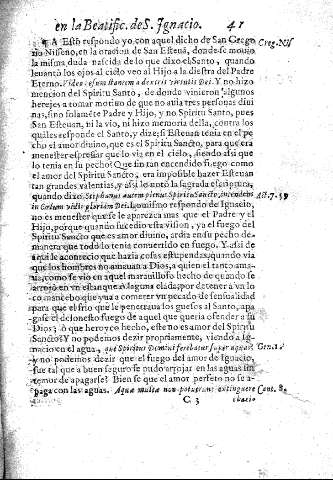 en la Beatific. de S. Ignacio. 41
¶ A Esto respondo yo, con aquel dicho de San Grego
rio Nisseno, en la oracion de San Esteuã, donde se mouio Greg. Niss
la misma duda nascida de lo que dixo el Santo, quando
leuantò los ojos al cielo veo al Hijo a la diestra del Padre
Eterno. Video Iesum stantem a dextris virtutis Dei. Y no hizo
mencion del Spiritu Santo, de donde vinieron algunos
herejes a tomar motiuo de que no auia tres personas diui
nas, sino solamẽte Padre, y Hijo, y no Spiritu Santo, pues
San Esteuan, ni la vio, ni hizo memoria della, contra los
quales responde el Santo, y dize; si Esteuan tenia en el pe
cho el amor diuino, que es el Spiritu Sancto, para que era
menester espresar que lo via en el cielo, siendo assi que
lo tenia en su pecho? Que sin tan encendido fuego como
el amor del Spiritu Sancto, era impossible hazer Esteuan
tan grandes valentias, y assi lo notò la sagrada escriptura,
quando dize: Stephanus autem plenus Spiritu Sancto, intendens Act. 7. 59
in Cœlum vidit gloriam Dei. Lo mismo respondo de Ignacio,
no es menester que se le aparezca mas que el Padre y el
Hijo, porque quando sucedio esta vision, ya el fuego del
Spiritu Sancto que es amor diuino, ardia en su pecho de
manera que todo lo tenia conuertido en fuego. Y assi de
aqui le acontecio que hazia cosas estupendas, quando via
que los hombres no amauan a Dios, a quien el tanto ama
ua, como se vio en aquel marauilloso hecho de quando se
arrojò en vn estanque o laguna elada, por detener a vn lo
co mancebo que yua a cometer vn pecado de sensualidad
para que el frio que le penetraua los guesos al Santo, apa
gasse el desonesto fuego de aquel que queria ofender a su
Dios; ò que heroyco hecho, este no es amor del Spiritu
Sancto? Y no podemos dezir propriamente, viendo a Ig-
nacio en el agua, que Spiritus Domini ferebatur super aquas? Gen. 1.
y no podemos dezir que el fuego del amor de Ignacio,
fue tal que a buen seguro se pudo arrojar en las aguas sin
temor de apagarse? Bien se que el amor perfeto no se a-
paga con las aguas. Aqua multa non potuerunt extinguere Cant. 8.
C 3